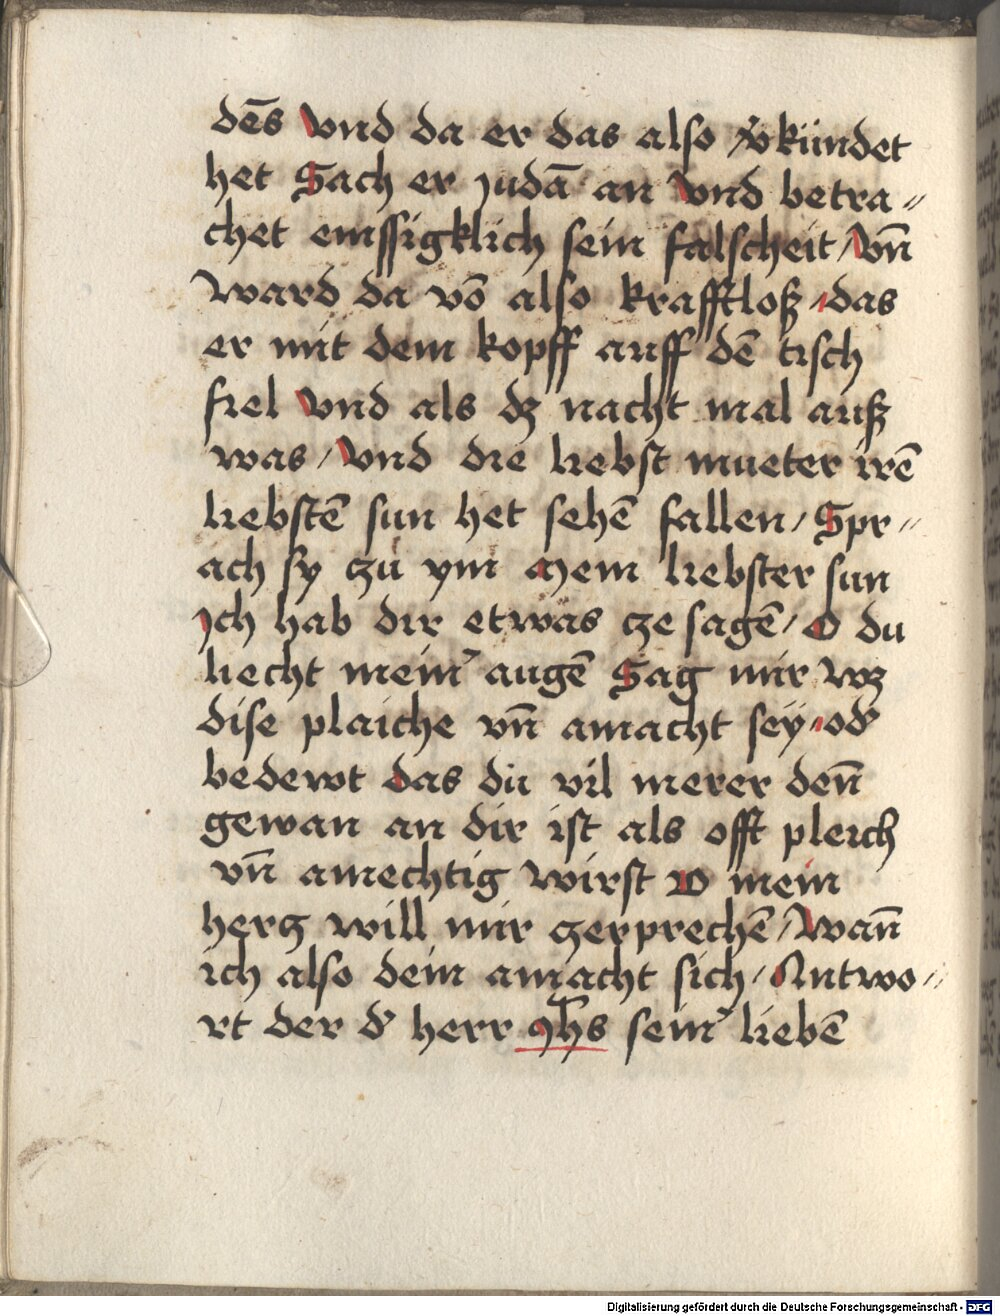 dēs Vnd da er das also v̄kündet
het Sach er Judā an Vnd betra〃
chet emssigklich sein falscheit / Vn̄
Ward da vō also krafftloß / das
er mit dem kopff auff dē tisch
fiel Vnd als dz nacht mal auß
was / Vnd die liebst mueter irē
liebstē sun het sehē fallen / Spr〃
ach sy zu ym Mein liebster sun
Ich hab dir etwas ze sagē / O du
liecht mein' augē Sag mir wz
dise plaiche vn̄ amacht sey / od'
bedewt das du vil merer den̄
gewan an dir ist als offt pleich
vn̄ amechtig wirst O mein
hercz will mir zerprechē / Wan̄
ich also dein amacht sich / Antwo〃
rt der d' herr Jhs sein' liebē
Digitalisierung gefördert durch die Deutsche Forschungsgemeinschaft - DFG